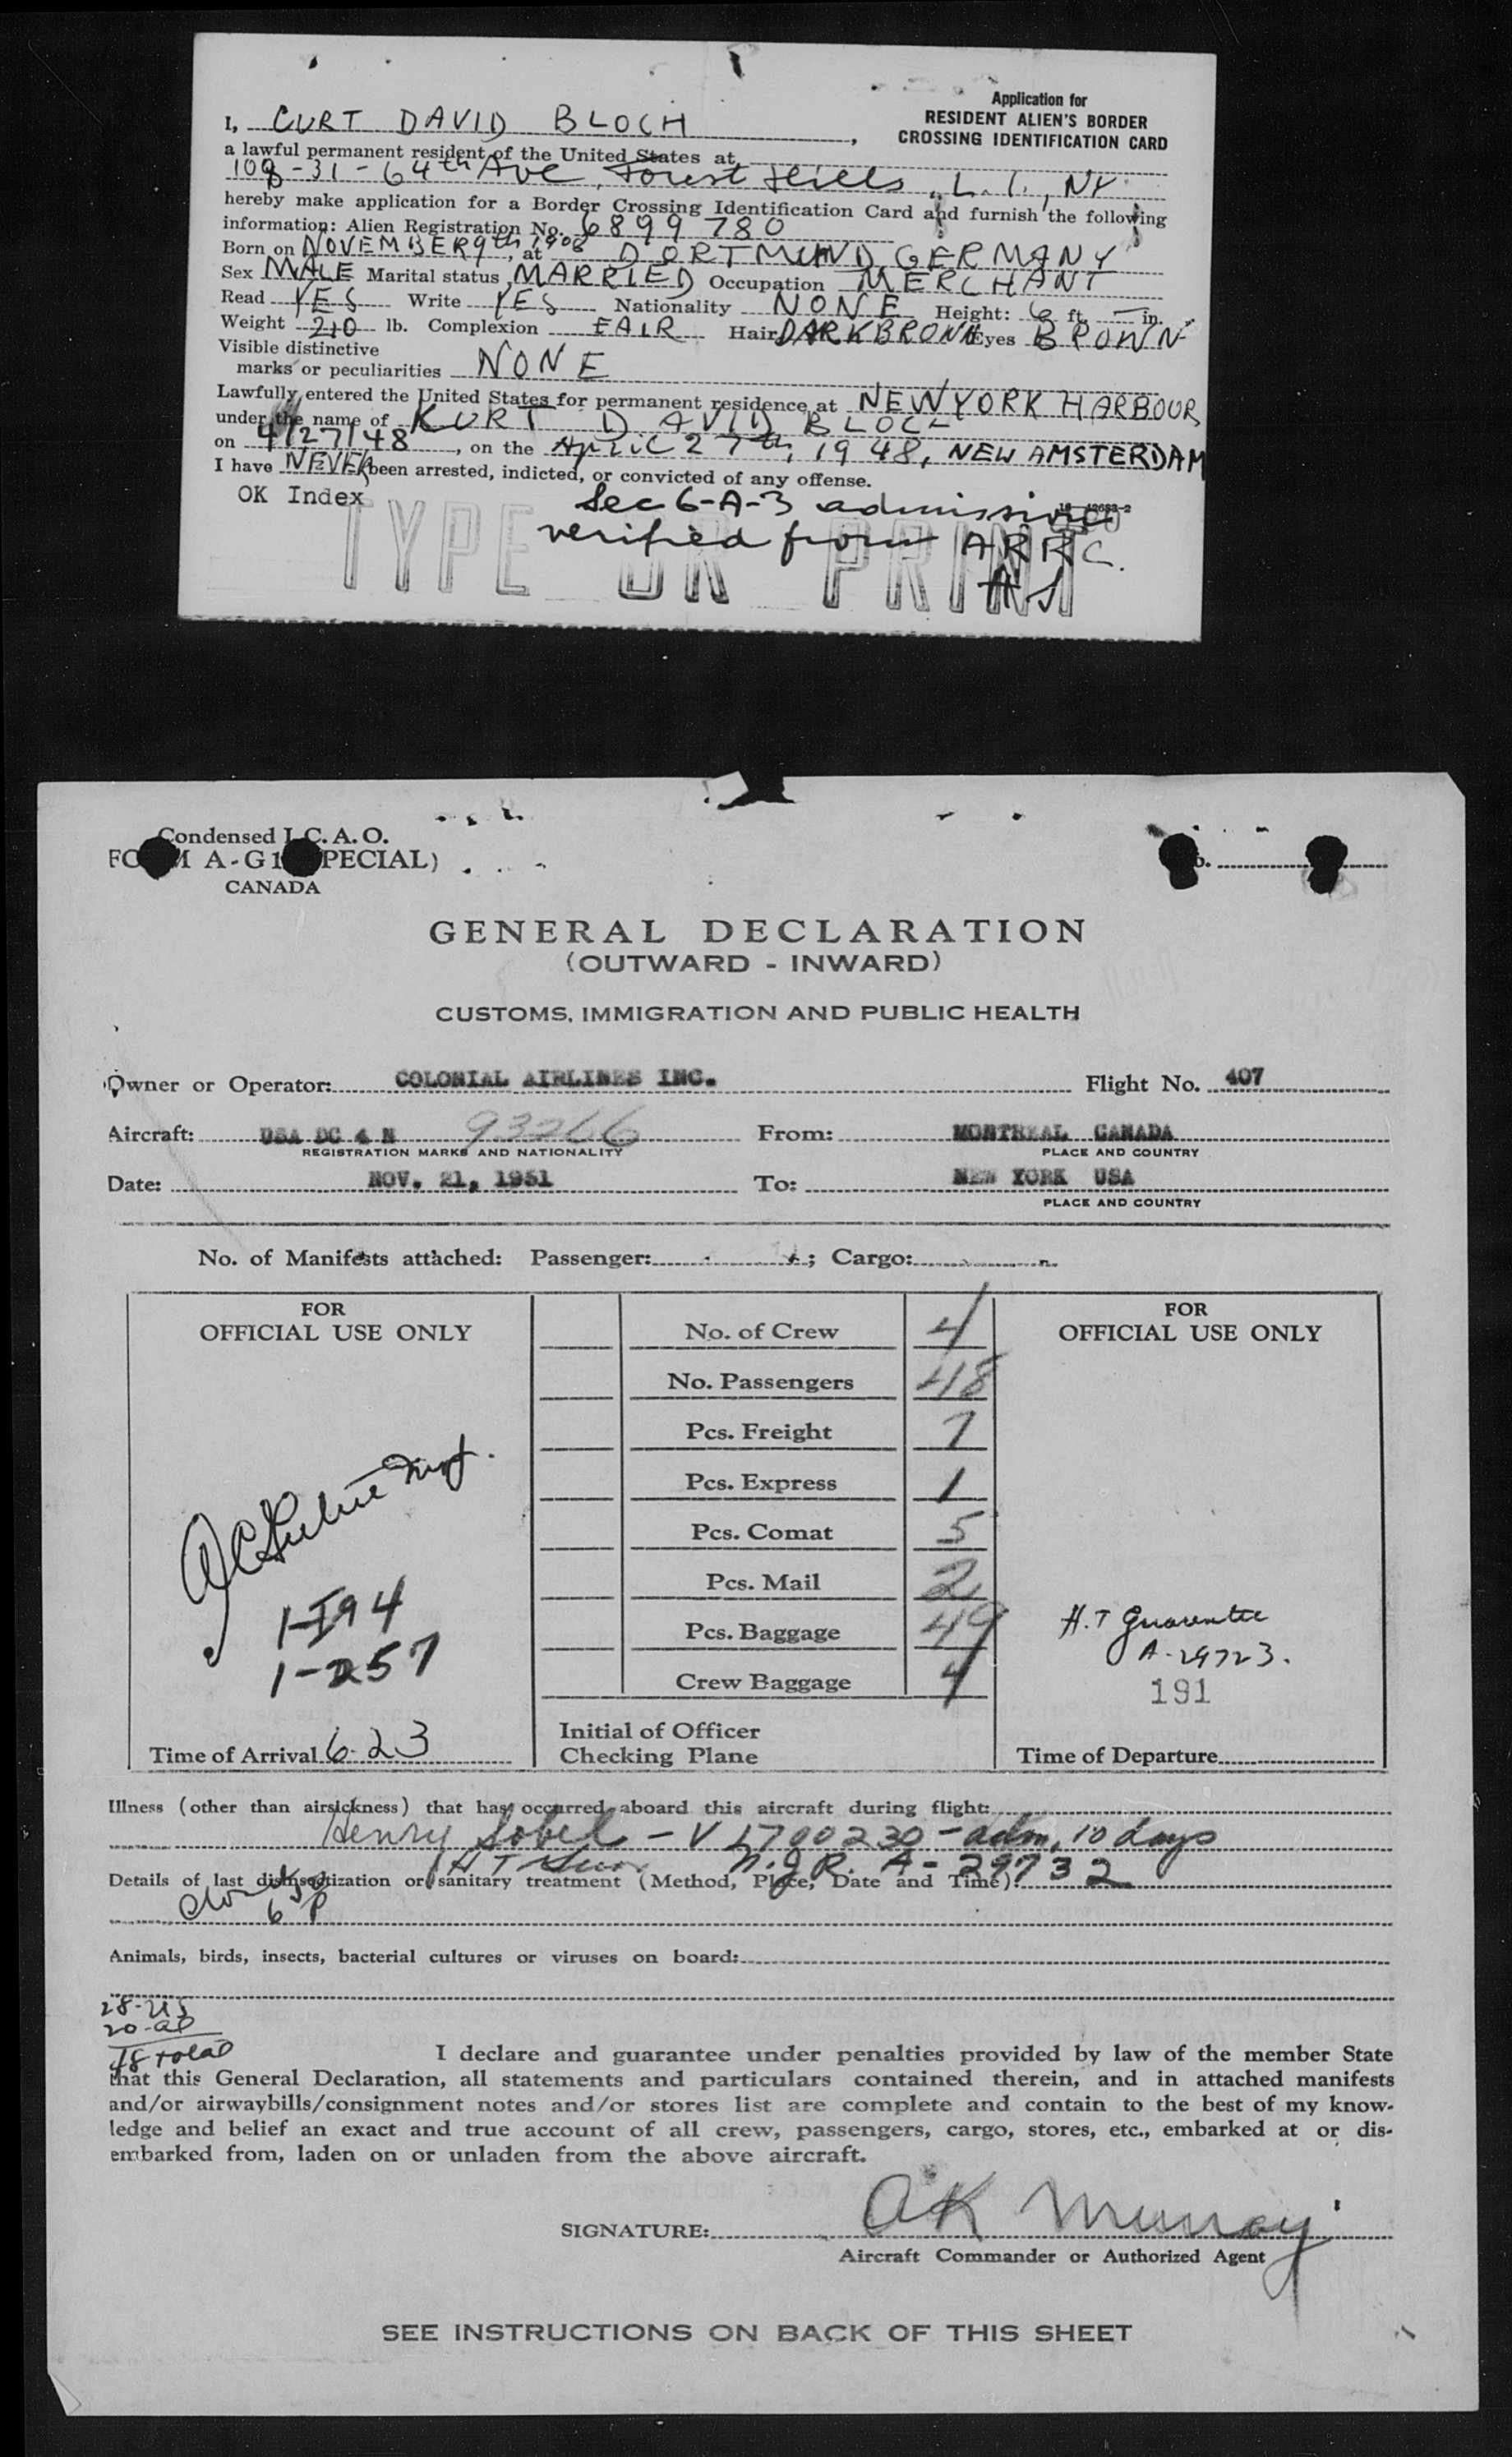 Application for
RESIDENT ALIEN'S BORDER
CROSSING IDENTIFICATION CARD
I, CURT DAVID BLOCH,
a lawful permanent resident of the United States at
108-31-64th Ave, Forest Hills, L.I., NY.
hereby make application for a Border Crossing Identification Card and furnish the following
information: Alien Registration No. 6899780
Born on NOVEMBER 9th 1908, at DORTMUND GERMANY
Sex MALE Marital status MARRIED Occupation MERCHANT
Read YES Write YES Nationality NONE Height: 6 ft. — in.
Weight 210 lb. Complexion FAIR Hair DARKBROWN Eyes BROWN
Visible distinctive
marks or peculiarities NONE
Lawfully entered the United States for permanent residence at NEWYORK HARBOUR
under the name of KURT DAVID BLOCH
on 4/27/48, on the April 27th, 1948, NEW AMSTERDAM
I have NEVER been arrested, indicted, or convicted of any offense.
OK Index
Sec 6-A-3 admission
verified from ARRC.
TYPE OR PRINT
Condensed I.C.A.O.
FORM A-G1 (SPECIAL)
CANADA
GENERAL DECLARATION
(OUTWARD - INWARD)
CUSTOMS, IMMIGRATION AND PUBLIC HEALTH
Owner or Operator: COLONIAL AIRLINES INC. Flight No. 407
Aircraft: USA DC 4 N 93266 From: MONTREAL CANADA
REGISTRATION MARKS AND NATIONALITY PLACE AND COUNTRY
Date: NOV. 21, 1951 To: NEW YORK USA
PLACE AND COUNTRY
No. of Manifests attached: Passenger: ; Cargo:
FOR
OFFICIAL USE ONLY
1-I94
1-257
Time of Arrival 6-23
No. of Crew 4
No. Passengers 48
Pcs. Freight 7
Pcs. Express 1
Pcs. Comat 5
Pcs. Mail 2
Pcs. Baggage 49
Crew Baggage 4
Initial of Officer
Checking Plane
FOR
OFFICIAL USE ONLY
H.T
A-29723.
191
Time of Departure
Illness (other than airsickness) that has occurred aboard this aircraft during flight:
Henry Sobel - V L700230 - adm, 10 days
H T A-29732
Details of last disinsectization or sanitary treatment (Method, Place, Date and Time):
Animals, birds, insects, bacterial cultures or viruses on board:
28-US
20-al
48 total
I declare and guarantee under penalties provided by law of the member State
that this General Declaration, all statements and particulars contained therein, and in attached manifests
and/or airwaybills/consignment notes and/or stores list are complete and contain to the best of my know-
ledge and belief an exact and true account of all crew, passengers, cargo, stores, etc., embarked at or dis-
embarked from, laden on or unladen from the above aircraft.
SIGNATURE: A K Murray
Aircraft Commander or Authorized Agent
SEE INSTRUCTIONS ON BACK OF THIS SHEET